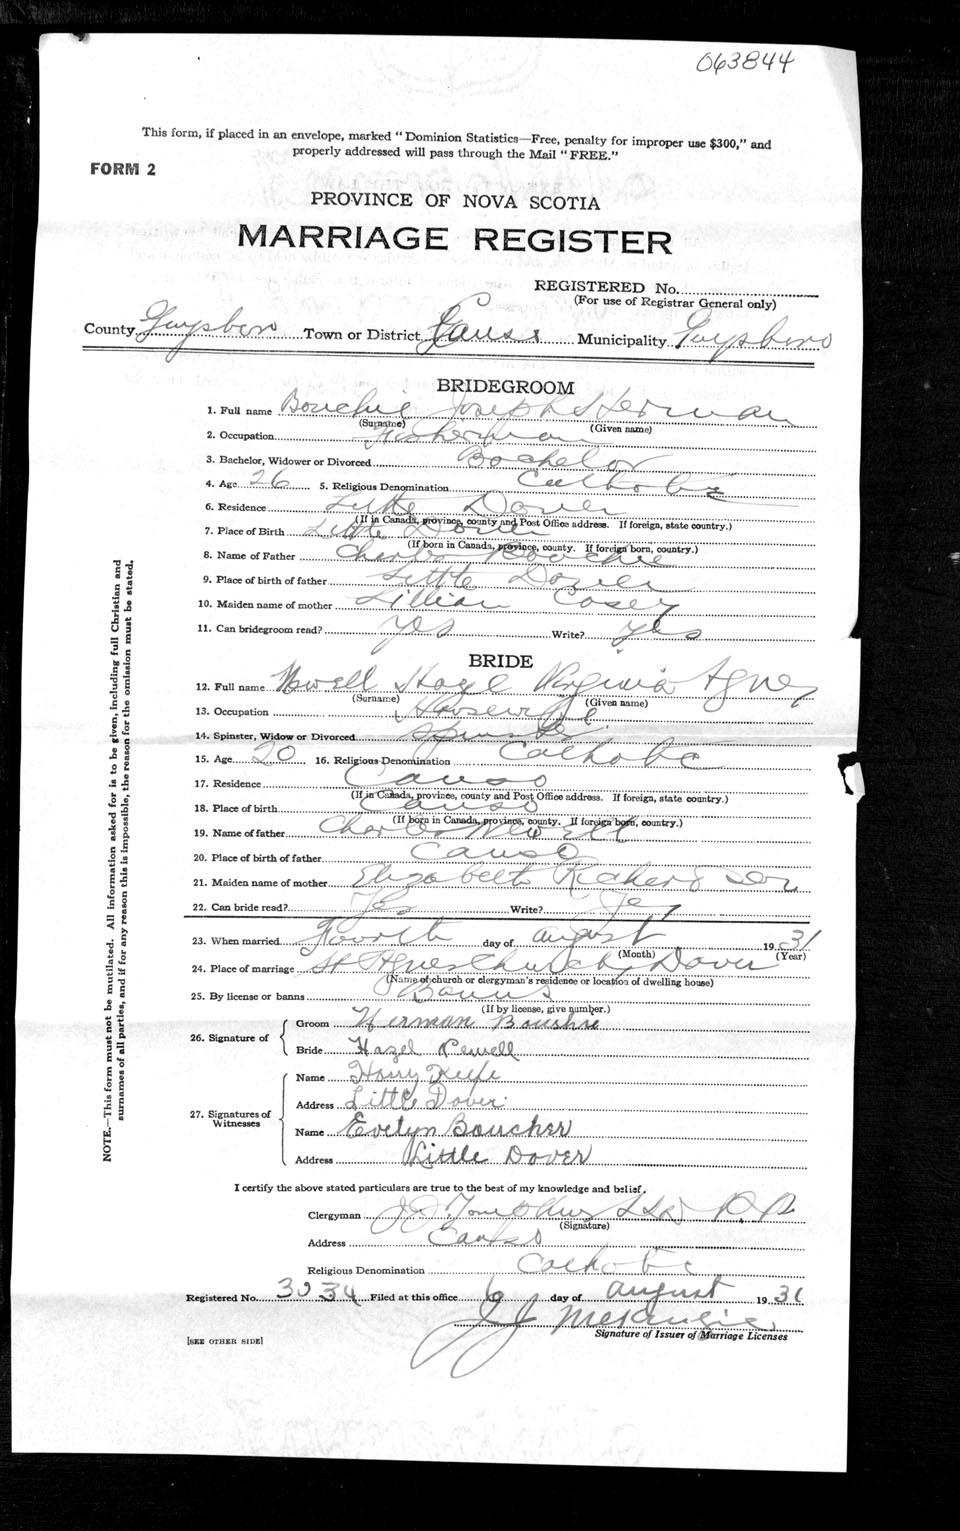 063844
This form, if placed in an envelope, marked "Dominion Statistics—Free, penalty for improper use $300," and
properly addressed will pass through the Mail "FREE."
FORM 2
PROVINCE OF NOVA SCOTIA
MARRIAGE REGISTER
REGISTERED No.
(For use of Registrar General only)
County Guysboro Town or District Canso Municipality Guysboro
BRIDEGROOM
1. Full name Bouchie Joseph Herman
(Surname) (Given name)
2. Occupation Fisherman
3. Bachelor, Widower or Divorced Bachelor
4. Age 26 5. Religious Denomination Catholic
6. Residence Little Dover
(If in Canada, province, county and Post Office address. If foreign, state country.)
7. Place of Birth Little Dover
(If born in Canada, province, county. If foreign born, country.)
8. Name of Father Charles Bouchie
9. Place of birth of father Little Dover
10. Maiden name of mother Lillian Casey
11. Can bridegroom read? yes Write? yes
BRIDE
12. Full name Newell Hazel Virginia Agnes
(Surname) (Given name)
13. Occupation Housewife
14. Spinster, Widow or Divorced Spinster
15. Age 20 16. Religious Denomination Catholic
17. Residence Canso
(If in Canada, province, county and Post Office address. If foreign, state country.)
18. Place of birth Canso
(If born in Canada, province, county. If foreign born, country.)
19. Name of father Charles Newell
20. Place of birth of father Canso
21. Maiden name of mother Elizabeth Richardson
22. Can bride read? Yes Write? Yes
23. When married Fourth day of August 1931
(Month) (Year)
24. Place of marriage St Agnes Church, Dover
(Name of church or clergyman's residence or location of dwelling house)
25. By license or banns Banns
(If by license, give number.)
26. Signature of
Groom Herman Boushie
Bride Hazel Newell
27. Signatures of Witnesses
Name Harry Keefe
Address Little Dover
Name Evelyn Boucher
Address Little Dover
I certify the above stated particulars are true to the best of my knowledge and belief.
Clergyman P.P.
(Signature)
Address Canso
Religious Denomination Catholic
Registered No. 3034 Filed at this office 6 day of August 1931
J J McKenzie
Signature of Issuer of Marriage Licenses
[SEE OTHER SIDE]
NOTE.—This form must not be mutilated. All information asked for is to be given, including full Christian and
surnames of all parties, and if for any reason this is impossible, the reason for the omission must be stated.